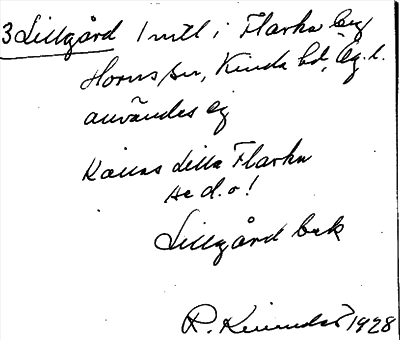 3 Lillgård 1 mtl i Flarka by
Horns sn, Kinda hd, Ög. l.
användes ej
Kallas Lilla Flarka
se d. o!
Lillgård bek
R. 1928